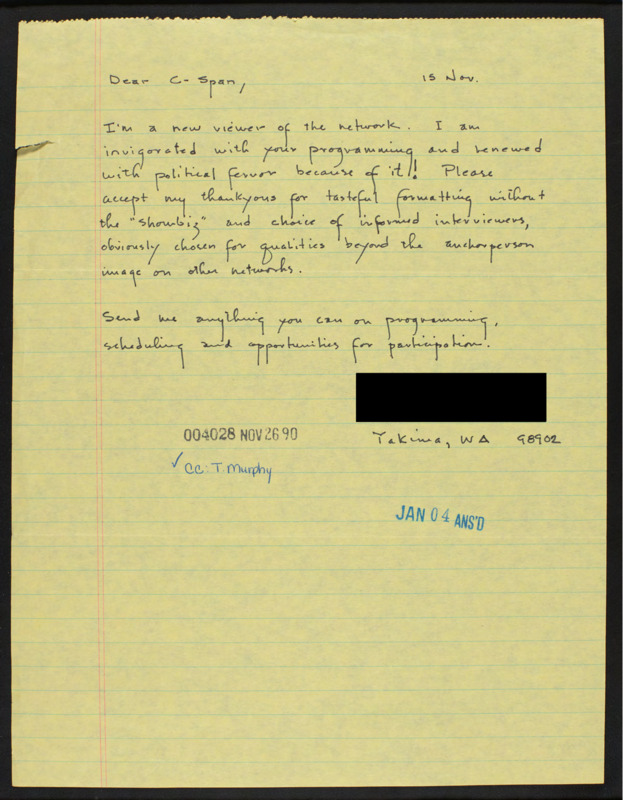 Dear C-Span,
15 Nov.
I'm a new viewer of the network. I am
invigorated with your programming and renewed
with political fervor because of it! Please
accept my thankyous for tasteful formatting without
the "showbiz" and choice of informed interviewers,
obviously chosen for qualities beyond the anchorperson
image on other networks.
Send me anything you can on programming,
scheduling and opportunities for participation.
004028 NOV 26 90
Yakima, WA 98902
✓ CC: T. Murphy
JAN 04 ANS'D